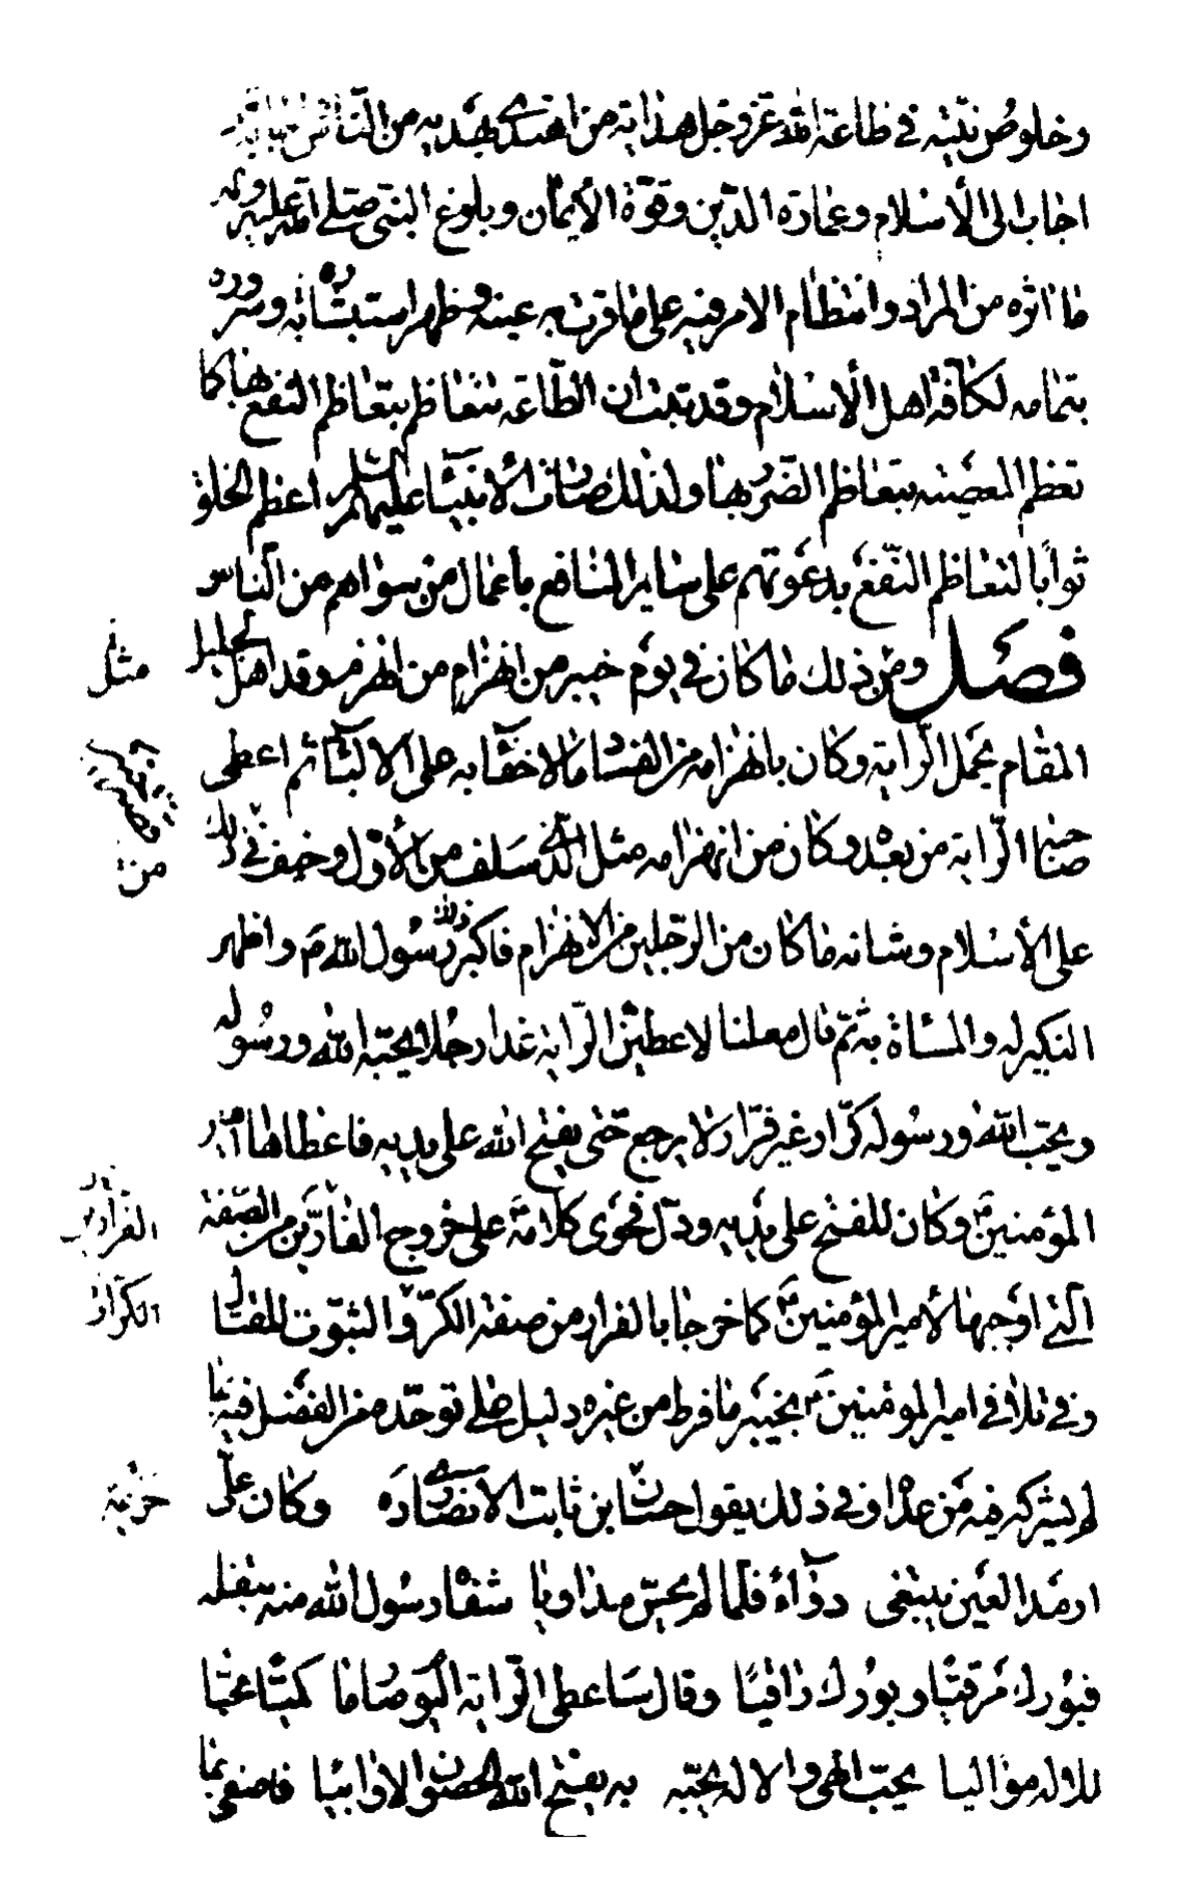 وخلوص نيته في طاعة الله عز وجل هداية من اهتدى بهديه من الناس
اجاب الى الأسلام وعمارة الدين وقوة الأيمان وبلوغ النبي صلى الله عليه وآله
ما اثره من المراد وانتظام الامر فيه على ما قرت به عينه وظهر استبشاره به وسروره
بتمامه لكآفة اهل الأسلام وقد ثبت ان الطاعة تتعاظم بتعاظم النفع بها كما
تعظم المعصية بتعاظم الضرر بها ولذلك صارت الأنبيآء عليهم السلم اعظم الخلق
ثوابًا لتعاظم النفع بدعوتهم على ساير المنافع باعمال من سواهم من الناس
فصل ومن ذلك ما كان في يوم خيبر من انهزام من انهزم وقد اهل لجليل
المقام بحمل الراية وكان بانهزامه من الفساد ما لا خفآء به على الالبآء ثم اعطى
صاحبه الراية من بعده وكان من انهزامه مثل الذي سلف من الأول وخيف في ذلك
على الأسلام وشانه ما كان من الرجلين من الانهزام فاكبر ذلك رسول الله ص واظهر
النكير له والمسآة به ثم قال معلنا لاعطين الراية غدا رجلا يحبه الله ورسوله
ويحب الله ورسوله كرار غير فرار لا يرجع حتى يفتح الله على يديه فاعطاها امير
المؤمنين ع وكان للفتح على يديه ودل فحوى كلامه ع على خروج الفارين من الصفة
التي اوجبها لأمير المؤمنين ع كما خرجا بالفرار من صفة الكر والثبوت للقتال
وفي تلافي امير المومنين ع بخيبر ما فرط من غيره دليل على توحده من الفضل فيه بما
لم يشركه فيه من عداه وفي ذلك يقول حسان بن ثابت الانصاري ره وكان علي
ارمد العين يبتغي دوآء فلما لم يحس مداويا شفاه رسول الله منه بتفله
فبورك مرقيا وبورك راقيًا وقال ساعطي الراية اليوم صارما كميا محبا
للاله مواليا يحب الهي والاله يحبه به يفتح الله الحصون الاوابيا فاصفى بها
مثل
من
الفرار
الكرار
خزيمة